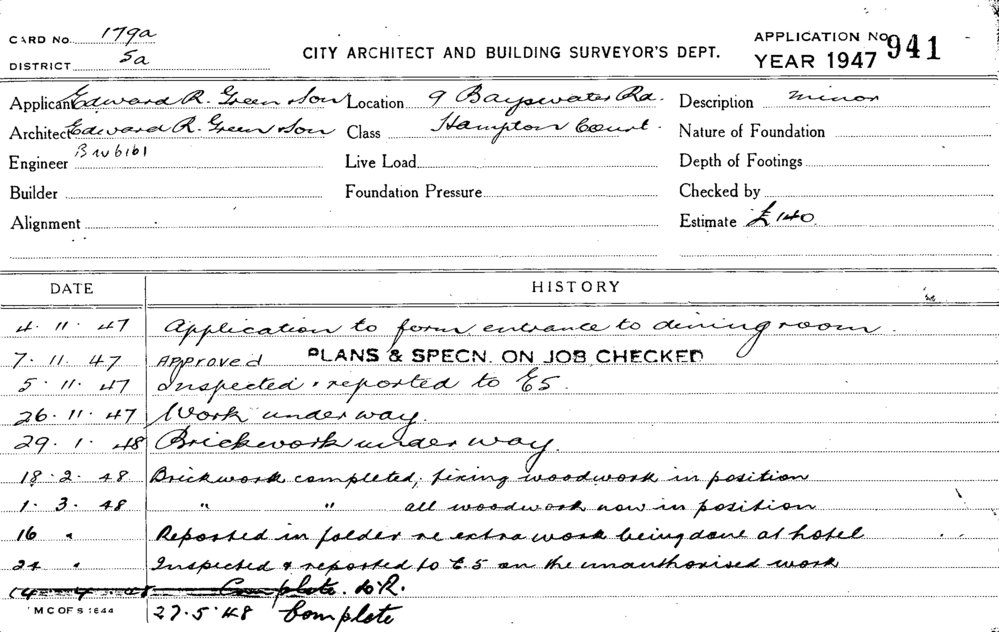 CARD NO. 179a
DISTRICT 5a
CITY ARCHITECT AND BUILDING SURVEYOR'S DEPT.
APPLICATION NO 941
YEAR 1947
Applicant Edward R. Green & Son Location 9 Bayswater Rd. Description minor
Architect Edward R. Green & Son Class Hampton Court. Nature of Foundation
Engineer BW6161 Live Load Depth of Footings
Builder Foundation Pressure Checked by
Alignment Estimate £140
DATE HISTORY
4. 11. 47 Application to form entrance to dining room.
7. 11. 47 Approved PLANS & SPECN. ON JOB CHECKED
5. 11. 47 Inspected & reported to E5.
26. 11. 47 Work under way.
29. 1. 48 Brickwork under way.
18. 2. 48 Brickwork completed, fixing woodwork in position
1. 3. 48 " " all woodwork now in position
16 " Reported in folder re extra work being done at hotel
24 " Inspected & reported to E.5 on the unauthorised work
14 4 48 Complete. R.
M C OF S 1644 27. 5. 48 Complete